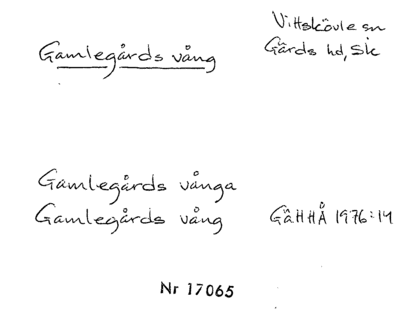 Vittskövle sn
Gärds hd, Sk
Gamlegårds vång
Gamlegårds vånga
Gamlegårds vång GäHHÅ 1976:14
Nr 17065